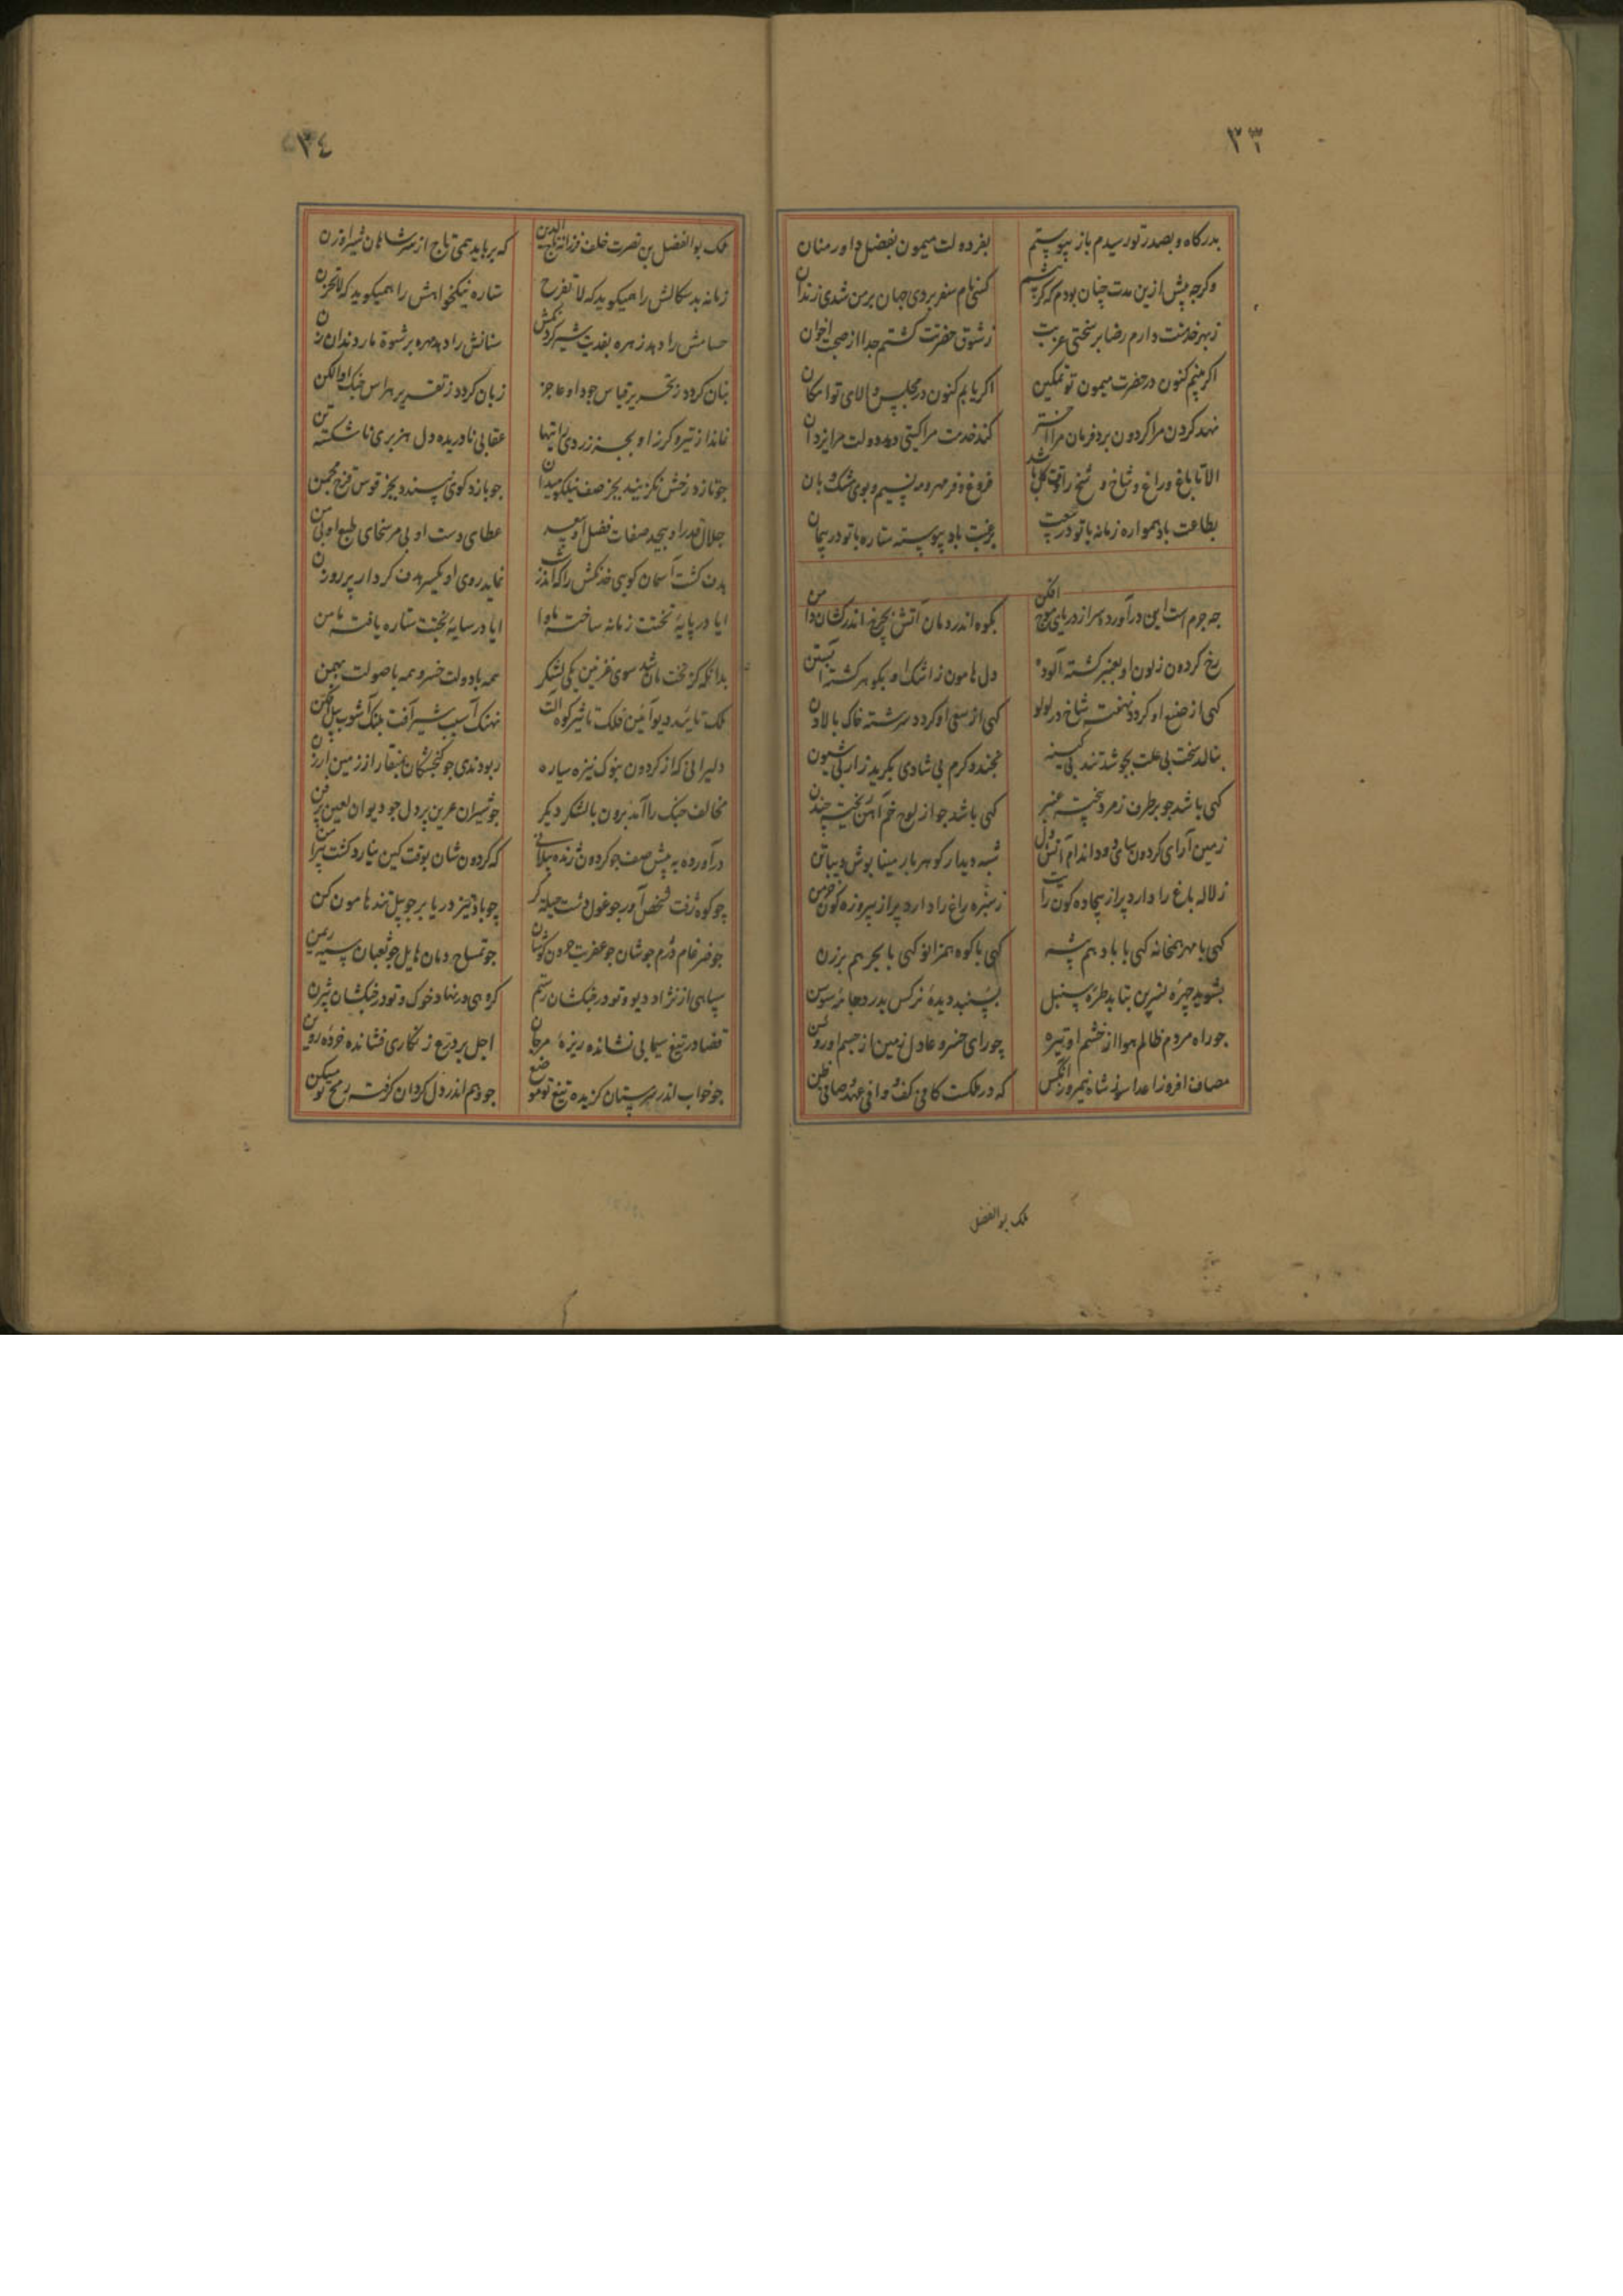 ٣٣
بدرکاه و بصدر تو رسیدم باز پیوستم بفر دولت میمون بفضل داور منان
وکرچه پیش ازین مدت چنان بودم که کر چشم کسی نام سفر بردی جهان بر من شدی زندان
ز بهر خدمتت دارم رضا بر سختی غربت ز شوق حضرتت کشتم جدا از صحبت اخوان
اکر بینم کنون در حضرت میمون تو تمکین اکر یابم کنون در مجلس والای تو امکان
نهد کردن مرا کردون برد فرمان مرا اختر کند خدمت مرا کیتی دهد دولت مرا یزدان
الا تا باغ و راغ و شاخ و شخ را وقت کل باشد فروغ و فر مهر و مه نسیم و بوی مشک و بان
بطاعت باد همواره زمانه با تو در بیعت برغبت باد پیوسته ستاره با تو در پیمان
چه جرم است این درآورده سر از دریای موج افکن بکوه اندر دمان آتش بچرخ اندر کشان دامن
رخ کردون ز لون او بعنبر کشته آلوده دل هامون ز اشک او بکوهر کشته آبستن
کهی از صنع او کردد نهفته شاخ در لولو کهی از سعی او کردد سرشته خاک با لادن
بنالد سخت بی علت بجوشد تند بی کینه بخندد کرم بی شادی بکرید زار بی شیون
کهی باشد چو بر طرف زمرد بیخته عنبر کهی باشد چو از لوح خم آهن ریخته چندن
زمین آرای کردون سای دود اندام آتش دل شبه دیدار کوهر بار مینا پوش دیبا تن
ز لاله باغ را دارد پر از بیجاده کون رایت ز سبزه راغ را دارد پر از پیروزه کون خرمن
کهی با مهر همخانه کهی با باد هم پیشه کهی با کوه همزانو کهی با بحر هم برزن
بشوید چهره نسرین بتابد طره سنبل ببندد دیده نرکس بدرد جامه سوسن
چو راه مردم ظالم هوا از خشم او تیره چو رای خسرو عادل زمین از جسم او روشن
مصاف افروز اعدا سوز شاه نیمروز آنکس که در ملکت کافی کف و وافی عهد و صافی ظن
ملک بوالفضل
٣٤
ملک بوالفضل بن نصرت خلف فرزانه تاج الدین که برباید همی تاج از سر شاهان شیراوژن
زمانه بدسکالش را همیکوید که لا تفرح ستاره نیکخواهش را همیکوید که لا تحزن
حسامش را دهد زهره بفدیت شیر کردنکش سنانش را دهد مهره برشوة مار دندان زن
بنان کردد ز تحریر قیاس جود او عاجز زبان کردد ز تقریر هراس جنک او الکن
نماند از تیر و کرز او بجز زردی رایتها عقابی نادریده دل هزبری ناشکسته تن
چو تازد رخش نکزیند بجز صف فلک میدان چو بازد کوی نپسندد بجز قوس قزح محجن
جلال قدر او بیحد صفات فضل او بیعد عطای دست او بی مر سخای طبع او بی من
هدف کشت آسمان کویی خدنکش را که اندر شب نماید روی او یکسر هدف کردار پر روزن
ایا در پایه تختت زمانه ساخته ماوا ایا در سایه بختت ستاره یافته مامن
بدانکه کز تخت شاهان شد سوی غزنین یکی لشکر همه با دولت خسرو همه با صولت بهمن
ملک تایید دیو آئین فلک تاثیر کوه آلت نهنک آسیب شیر آفت پلنک آشوب پیل افکن
دلیرانی که از کردون بنوک نیزه سیاره ربودندی چو کنجشکان بمنقار از زمین ارزن
مخالف جنک را آمد برون با لشکر دیکر چو شیران عرین پر دل چو دیوان لعین پر فن
درآورده به پیش صف چو کردون ژنده پیلانی که کردون شان بوقت کین نیارد کشت پیرامن
چو کوه زفت شخص آور چو غول دشت حیله کر چو باد تیز دریا بر چو پیل تند هامون کن
چو ضرغام دژم جوشان چو عفریت حرون کوشان چو تمساح دمان هایل چو ثعبان سیه ریمن
سپاهی از نژاد دیو و تو در جنکشان رستم کروهی در نهاد خوک و تو در جنکشان بیژن
قضا در تیغ سیمابی نشانده ریزه مرجان اجل بر درع زنکاری فشانده خرده روین
چو خواب اندر سر مستان کزیده تیغ تو موضع چو وهم اندر دل کردان کرفته رمح تو مسکن